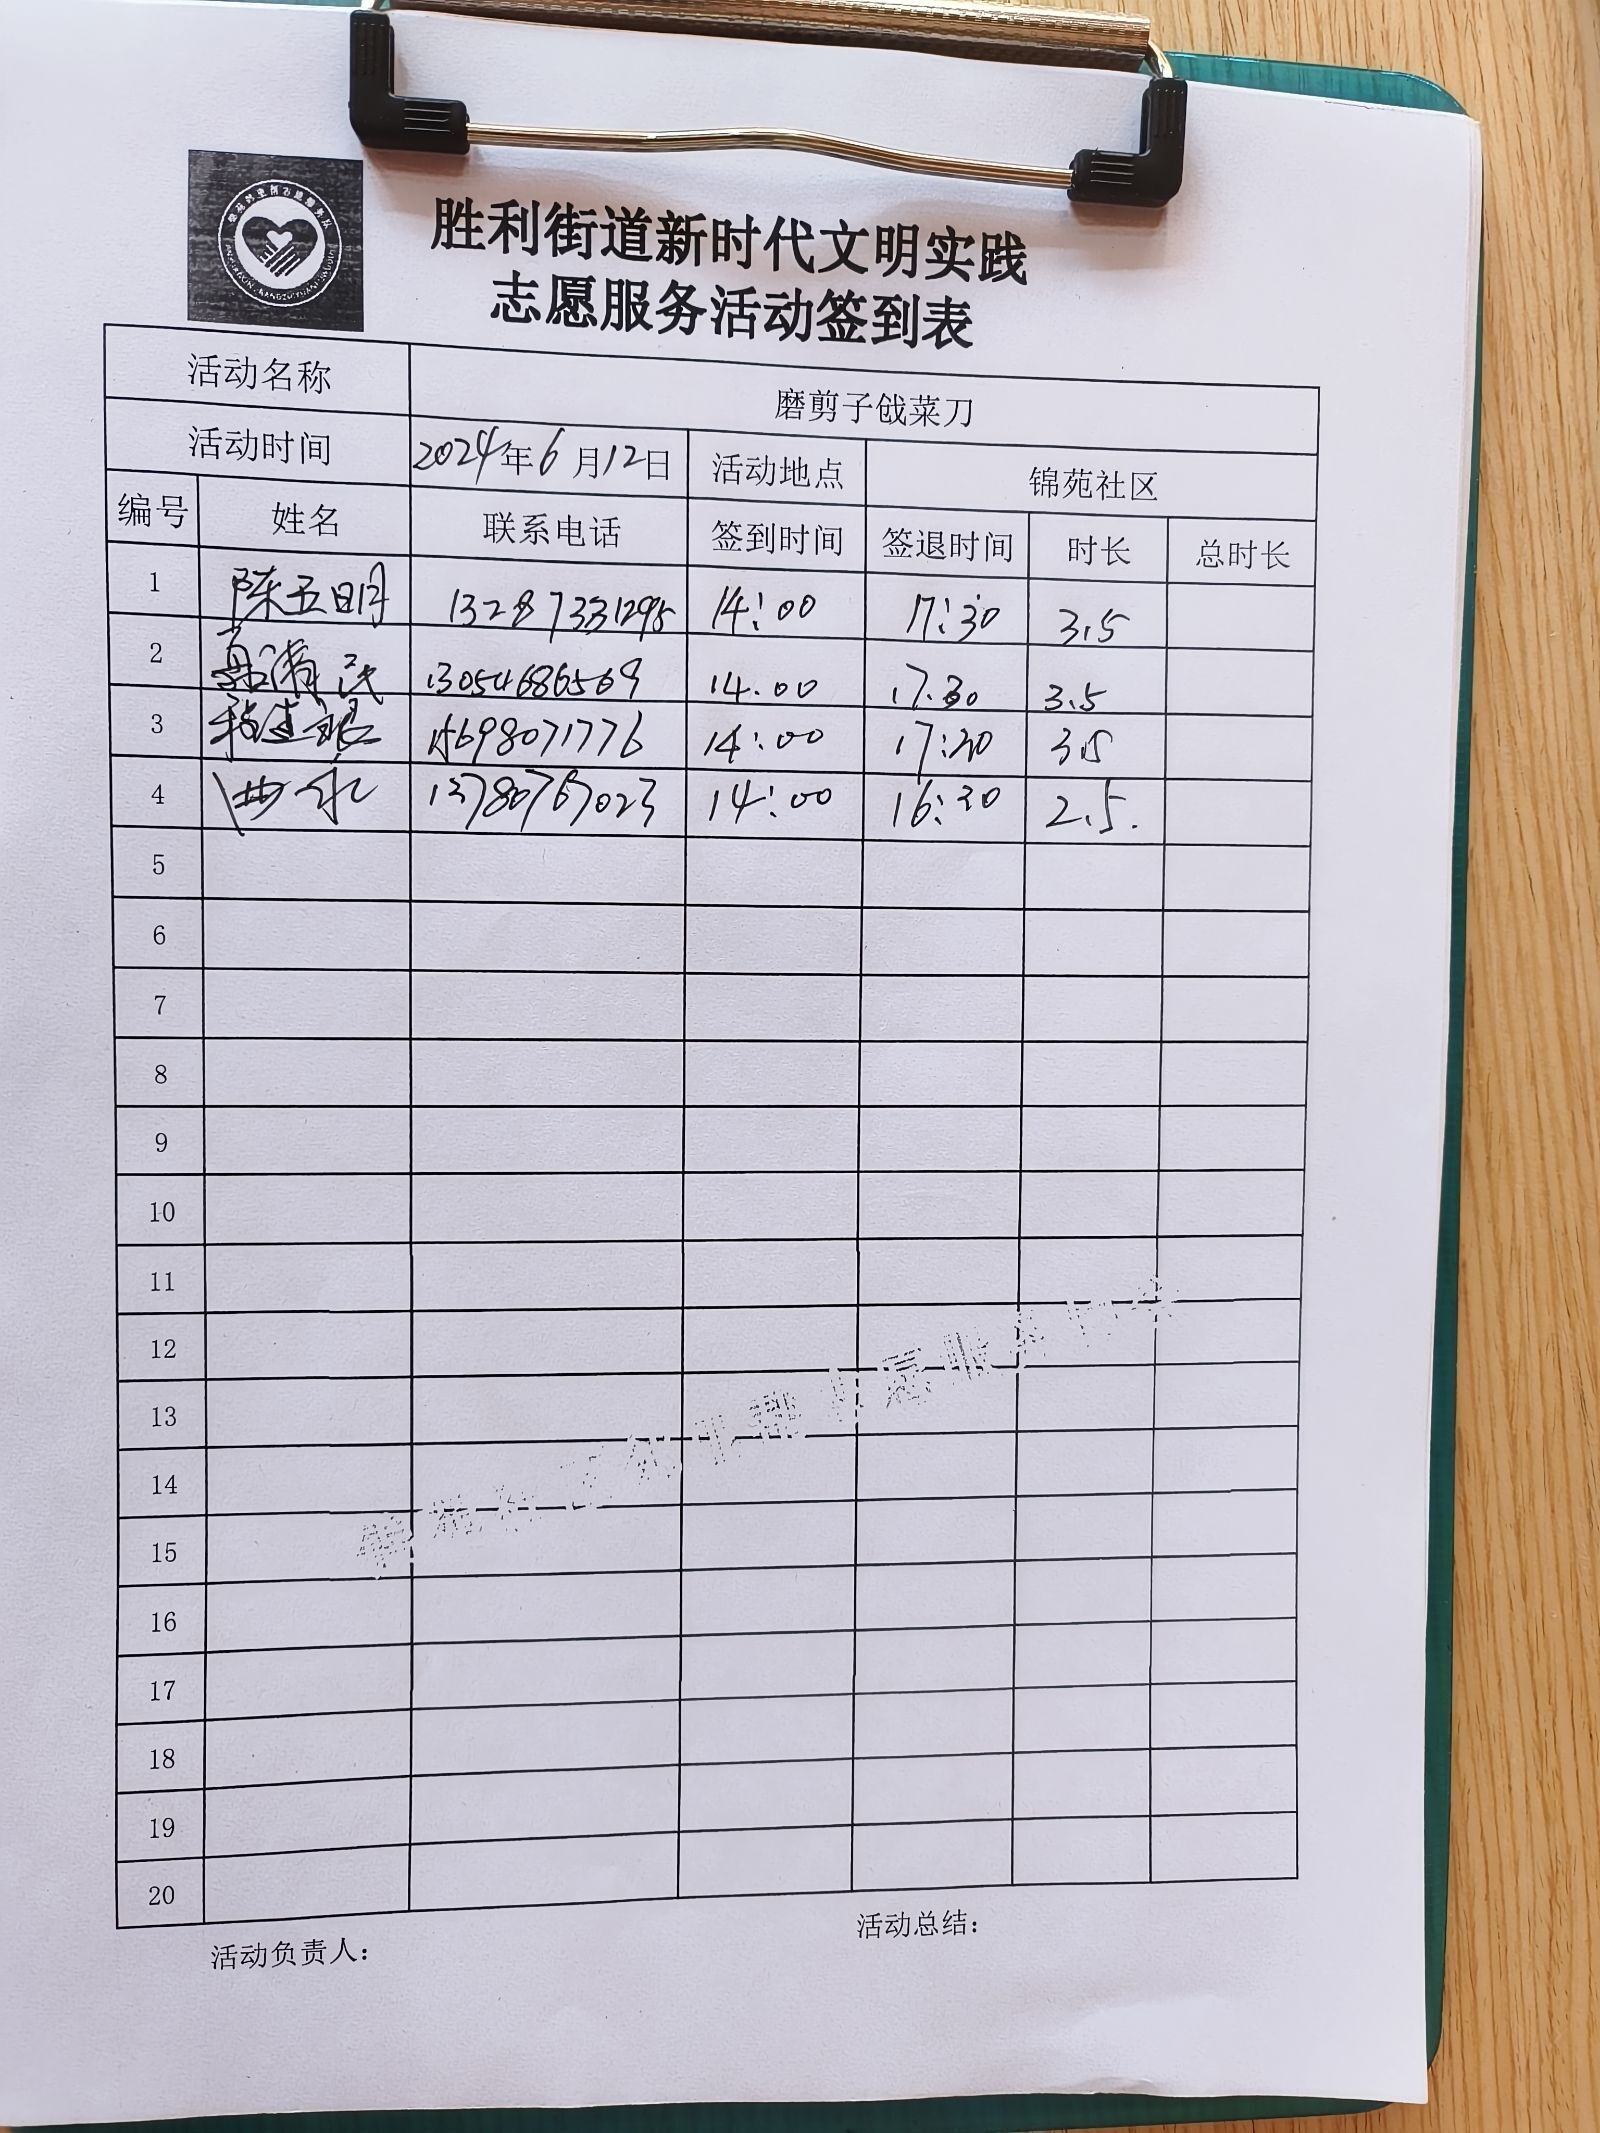 胜利街道新时代文明实践
志愿服务活动签到表
活动名称 磨剪子戗菜刀
活动时间 2024年6月12日 活动地点 锦苑社区
编号 姓名 联系电话 签到时间 签退时间 时长 总时长
1 陈五明 13287331295 14:00 17:30 3.5
2 清民 13054686569 14.00 17.30 3.5
3 15698071776 14:00 17:30 3.5
4 13780767023 14:00 16:30 2.5.
5
6
7
8
9
10
11
12
13
14
15
16
17
18
19
20
活动负责人: 活动总结: